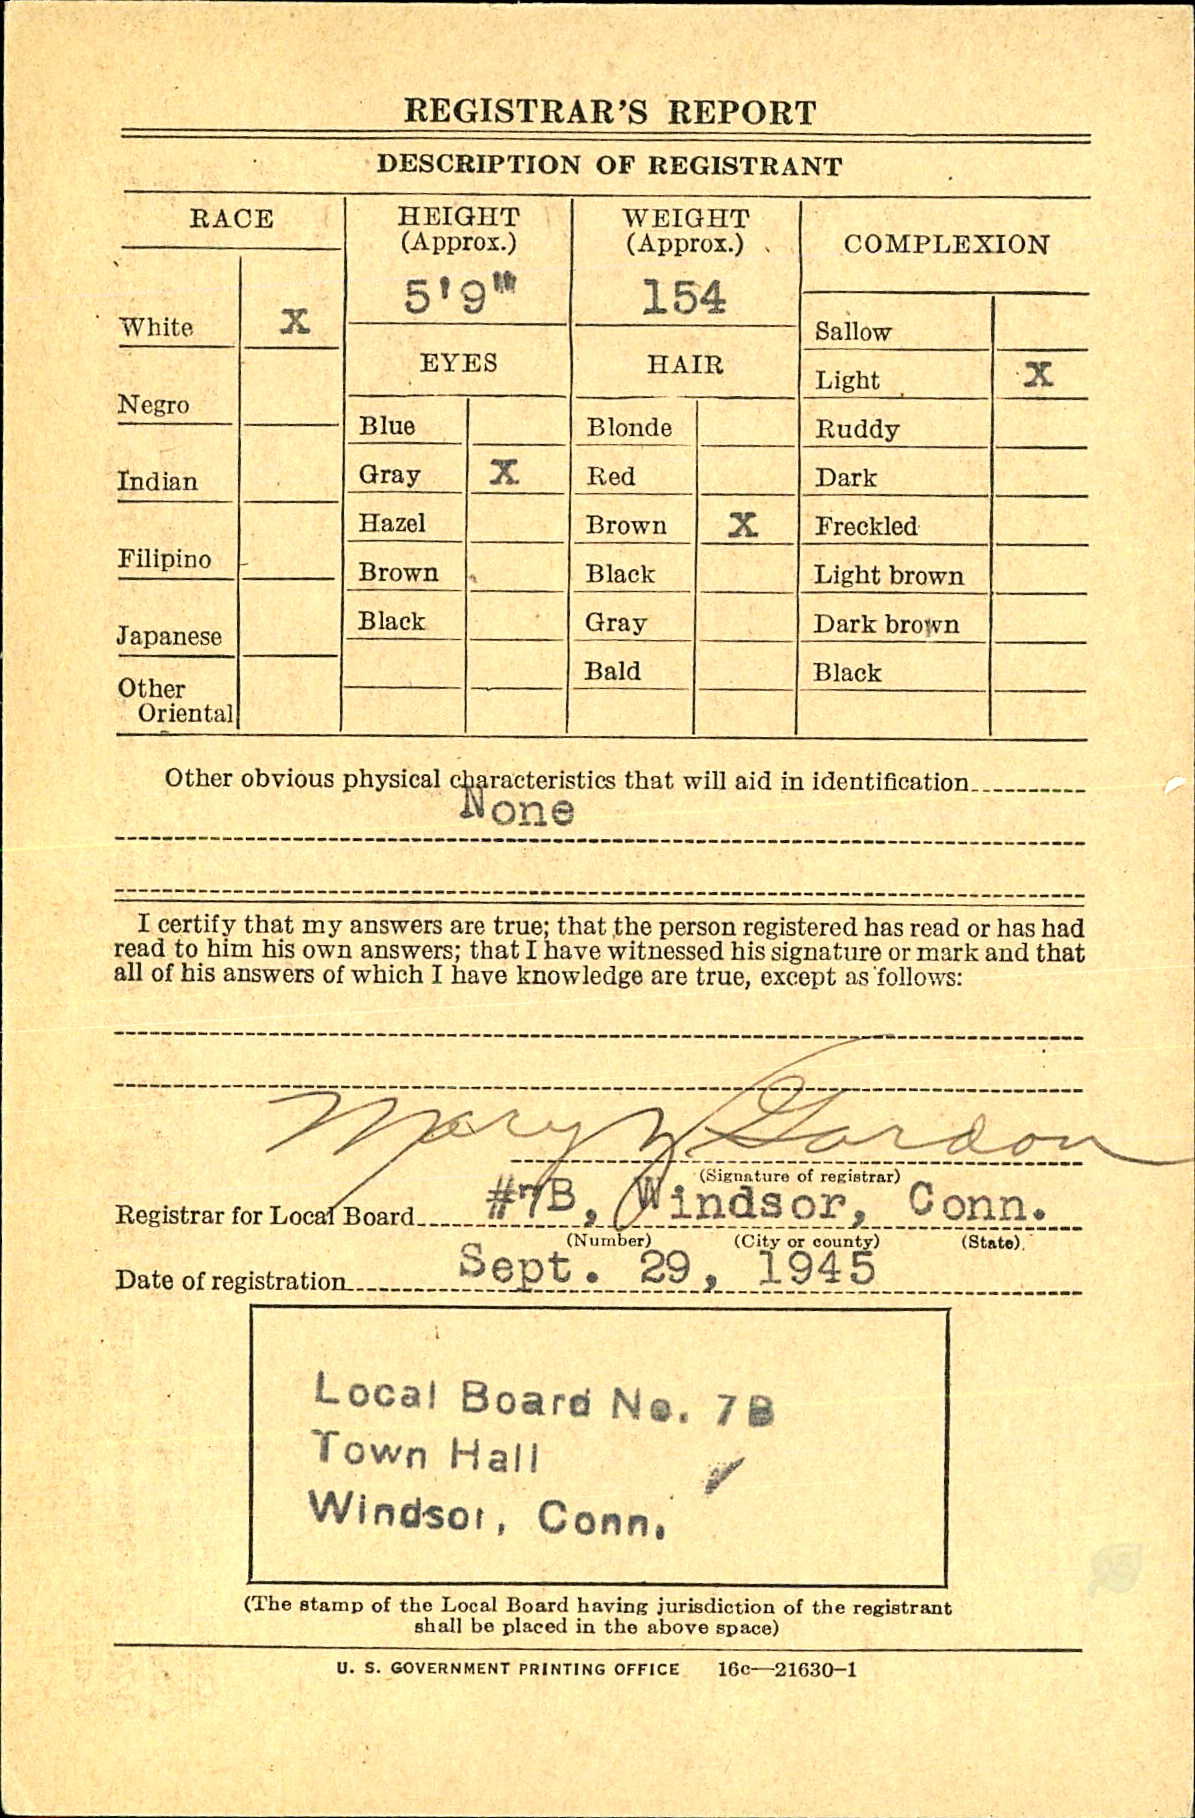 REGISTRAR'S REPORT
DESCRIPTION OF REGISTRANT
RACE
White X
Negro
Indian
Filipino
Japanese
Other
Oriental
HEIGHT
(Approx.)
5'9"
EYES
Blue
Gray X
Hazel
Brown
Black
WEIGHT
(Approx.)
154
HAIR
Blonde
Red
Brown X
Black
Gray
Bald
COMPLEXION
Sallow
Light X
Ruddy
Dark
Freckled
Light brown
Dark brown
Black
Other obvious physical characteristics that will aid in identification
None
I certify that my answers are true; that the person registered has read or has had
read to him his own answers; that I have witnessed his signature or mark and that
all of his answers of which I have knowledge are true, except as follows:
Mary Y. Gordon
(Signature of registrar)
Registrar for Local Board #7B, Windsor, Conn.
(Number) (City or county) (State)
Date of registration Sept. 29, 1945
Local Board No. 7B
Town Hall
Windsor, Conn.
(The stamp of the Local Board having jurisdiction of the registrant
shall be placed in the above space)
U. S. GOVERNMENT PRINTING OFFICE 16c—21630-1